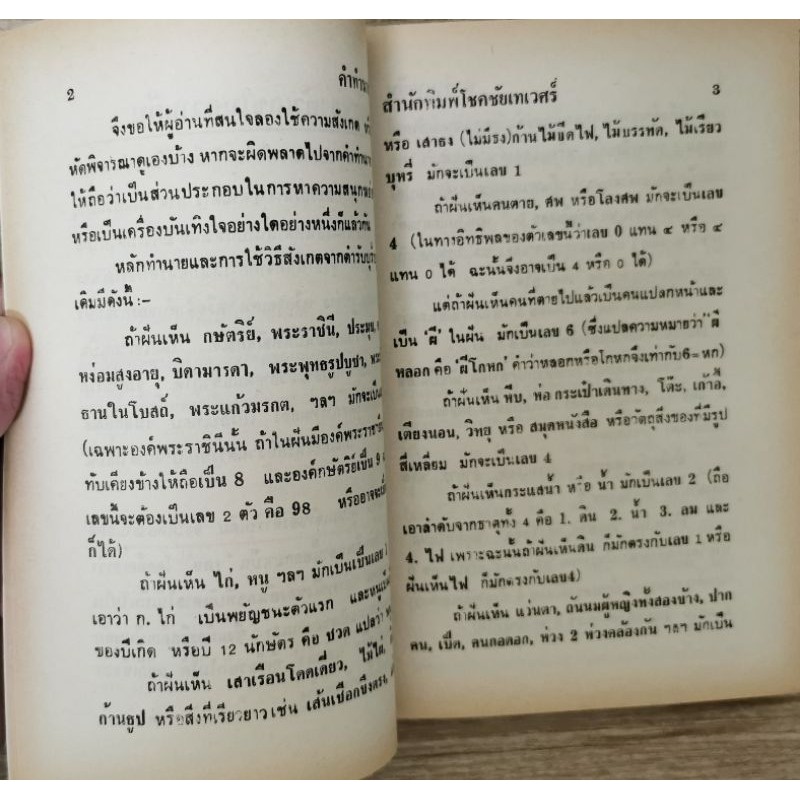 2
คำทำนา
จึงขอให้ผู้อ่านที่สนใจลองใช้ความสังเกต
หัดพิจารณาดูเองบ้าง หากจะผิดพลาดไปจากคำทำนา
ให้ถือว่าเป็นส่วนประกอบในการหาความสนุก
หรือเป็นเครื่องบันเทิงใจอย่างใดอย่างหนึ่งก็แล้วกัน
หลักทำนายและการใช้วิธีสังเกตจากตำรับ
เดิมมีดังนี้ :-
ถ้าฝันเห็น กษัตริย์, พระราชินี, ประมุข,
หง่อมสูงอายุ, บิดามารดา, พระพุทธรูปบูชา,
ธานในโบสถ์, พระแก้วมรกต, ฯลฯ มักจะเป็น
(เฉพาะองค์พระราชินีนั้น ถ้าในฝันมีองค์พระราช
ทับเคียงข้างให้ถือเป็น 8 และองค์กษัตริย์เป็น 9
เลขนี้จะต้องเป็นเลข 2 ตัว คือ 98 หรืออาจจะ
ก็ได้)
ถ้าฝันเห็น ไก่, หนู ฯลฯ มักเป็นเป็นเลข
เอาว่า ก. ไก่ เป็นพยัญชนะตัวแรก และหนู
ของปีเกิด หรือปี 12 นักษัตร คือ ชวด แปลว่า
ถ้าฝันเห็น เสาเรือนโดดเดี่ยว, ไม้ไผ่,
ก้านธูป หรือสิ่งที่เรียวยาว เช่น เส้นเชือกขึงตรง,
สำนักพิมพ์โชคชัยเทเวศร์
3
หรือ เสาธง (ไม่มีธง) ก้านไม้ขีดไฟ, ไม้บรรทัด, ไม้เรียว
บุหรี่ มักจะเป็นเลข 1
ถ้าฝันเห็นคนตาย, ศพ หรือโลงศพ มักจะเป็นเลข
4 (ในทางอิทธิพลของตัวเลขนี้ว่าเลข 0 แทน ๔ หรือ ๔
แทน 0 ได้ ฉะนั้นจึงอาจเป็น 4 หรือ 0 ได้)
แต่ถ้าฝันเห็นคนที่ตายไปแล้วเป็นคนแปลกหน้าและ
เป็น 'ผี' ในฝัน มักเป็นเลข 6 (ซึ่งแปลความหมายว่า "ผี
หลอก คือ 'ผีโกหก' คำว่าหลอกหรือโกหกจึงเท่ากับ 6 = หก)
ถ้าฝันเห็น หีบ, ห่อ กระเป๋าเดินทาง, โต๊ะ, เก้าอี้
เตียงนอน, วิทยุ หรือ สมุดหนังสือ หรือวัตถุสิ่งของที่มีรูป
สี่เหลี่ยม มักจะเป็นเลข 4
ถ้าฝันเห็นกระแสน้ำ หรือ น้ำ มักเป็นเลข 2 (ถือ
เอาลำดับจากธาตุทั้ง 4 คือ 1. ดิน 2. น้ำ 3. ลม และ
4. ไฟ เพราะฉะนั้นถ้าฝันเห็นดิน ก็มักตรงกับเลข 1 หรือ
ฝันเห็นไฟ ก็มักตรงกับเลข 4)
ถ้าฝันเห็น แว่นตา, ถันนมผู้หญิงทั้งสองข้าง, ปาก
คน, เป็ด, คนกอดคอ, ห่วง 2 ห่วงคล้องกัน ฯลฯ มักเป็น